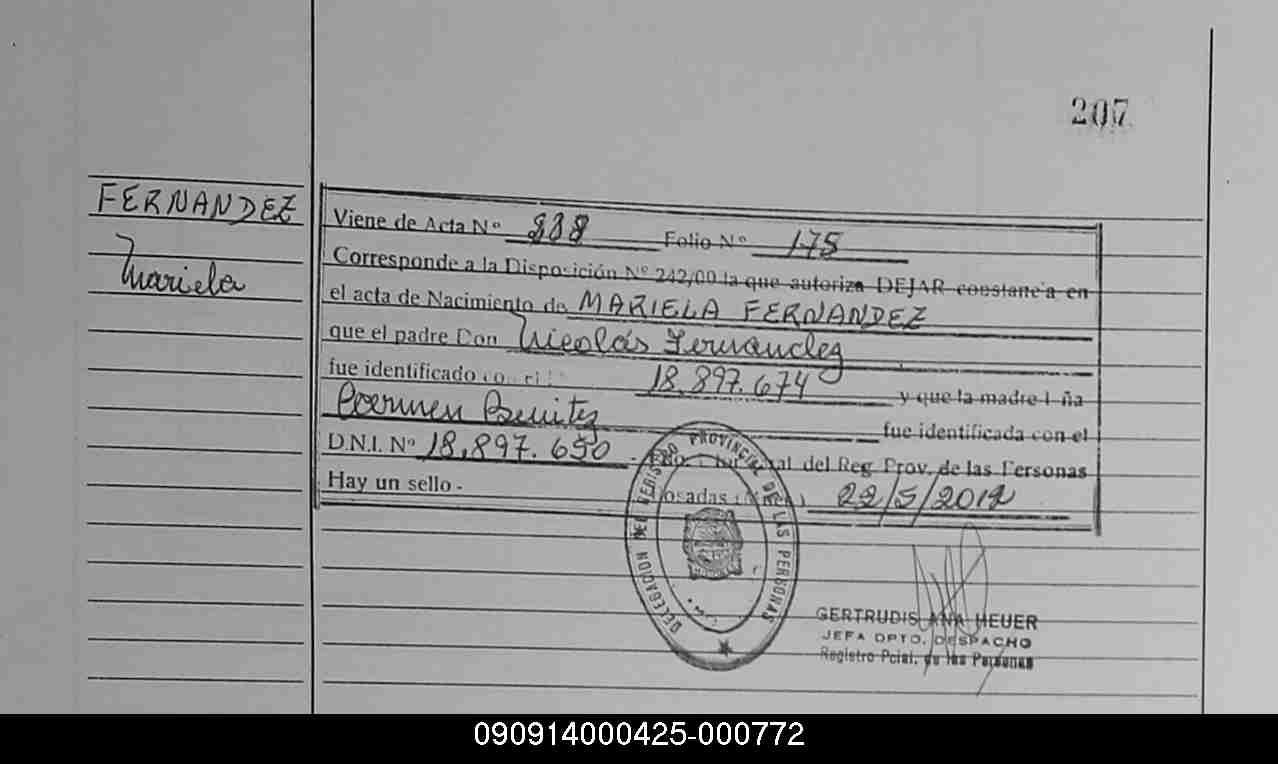 207
FERNANDEZ
Mariela
Viene de Acta Nº 338 Folio Nº 175
Corresponde a la Disposición Nº 242/00 la que autoriza DEJAR constancia en
el acta de Nacimiento de MARIELA FERNANDEZ
que el padre Don Nicolás Fernandez
fue identificado con el 18.897.674 y que la madre Dña
Carmen Benitez fue identificada con el
D.N.I. Nº 18.897.650 del Reg Prov. de las Personas
Hay un sello - Posadas 22/5/2012
DELEGACION DEL REGISTRO PROVINCIAL DE LAS PERSONAS
GERTRUDIS ANA HEUER
JEFA DPTO. DESPACHO
Registro Pcial. de las Personas
090914000425-000772